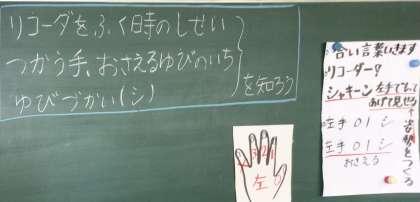 リコーダをふく時のしせい
つかう手、おさえるゆびのいち
ゆびづかい(シ)
を知ろう
合い言葉いきます
リコーダー?
シャキーン
左手でもって
あげて見せる
左手 0 1 シ
左手 0 1 シ
おさえろ
姿勢をつくる
左